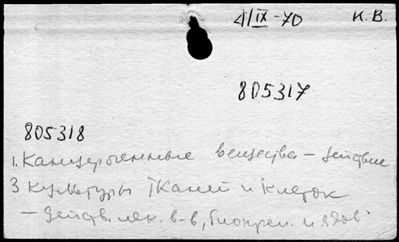 4/IX-70 К.В.
805317
805318
1. Канцерогенные вещества - действие
3 Культуры тканей и клеток
- действ. лек. в-в, биопреп. и ядов